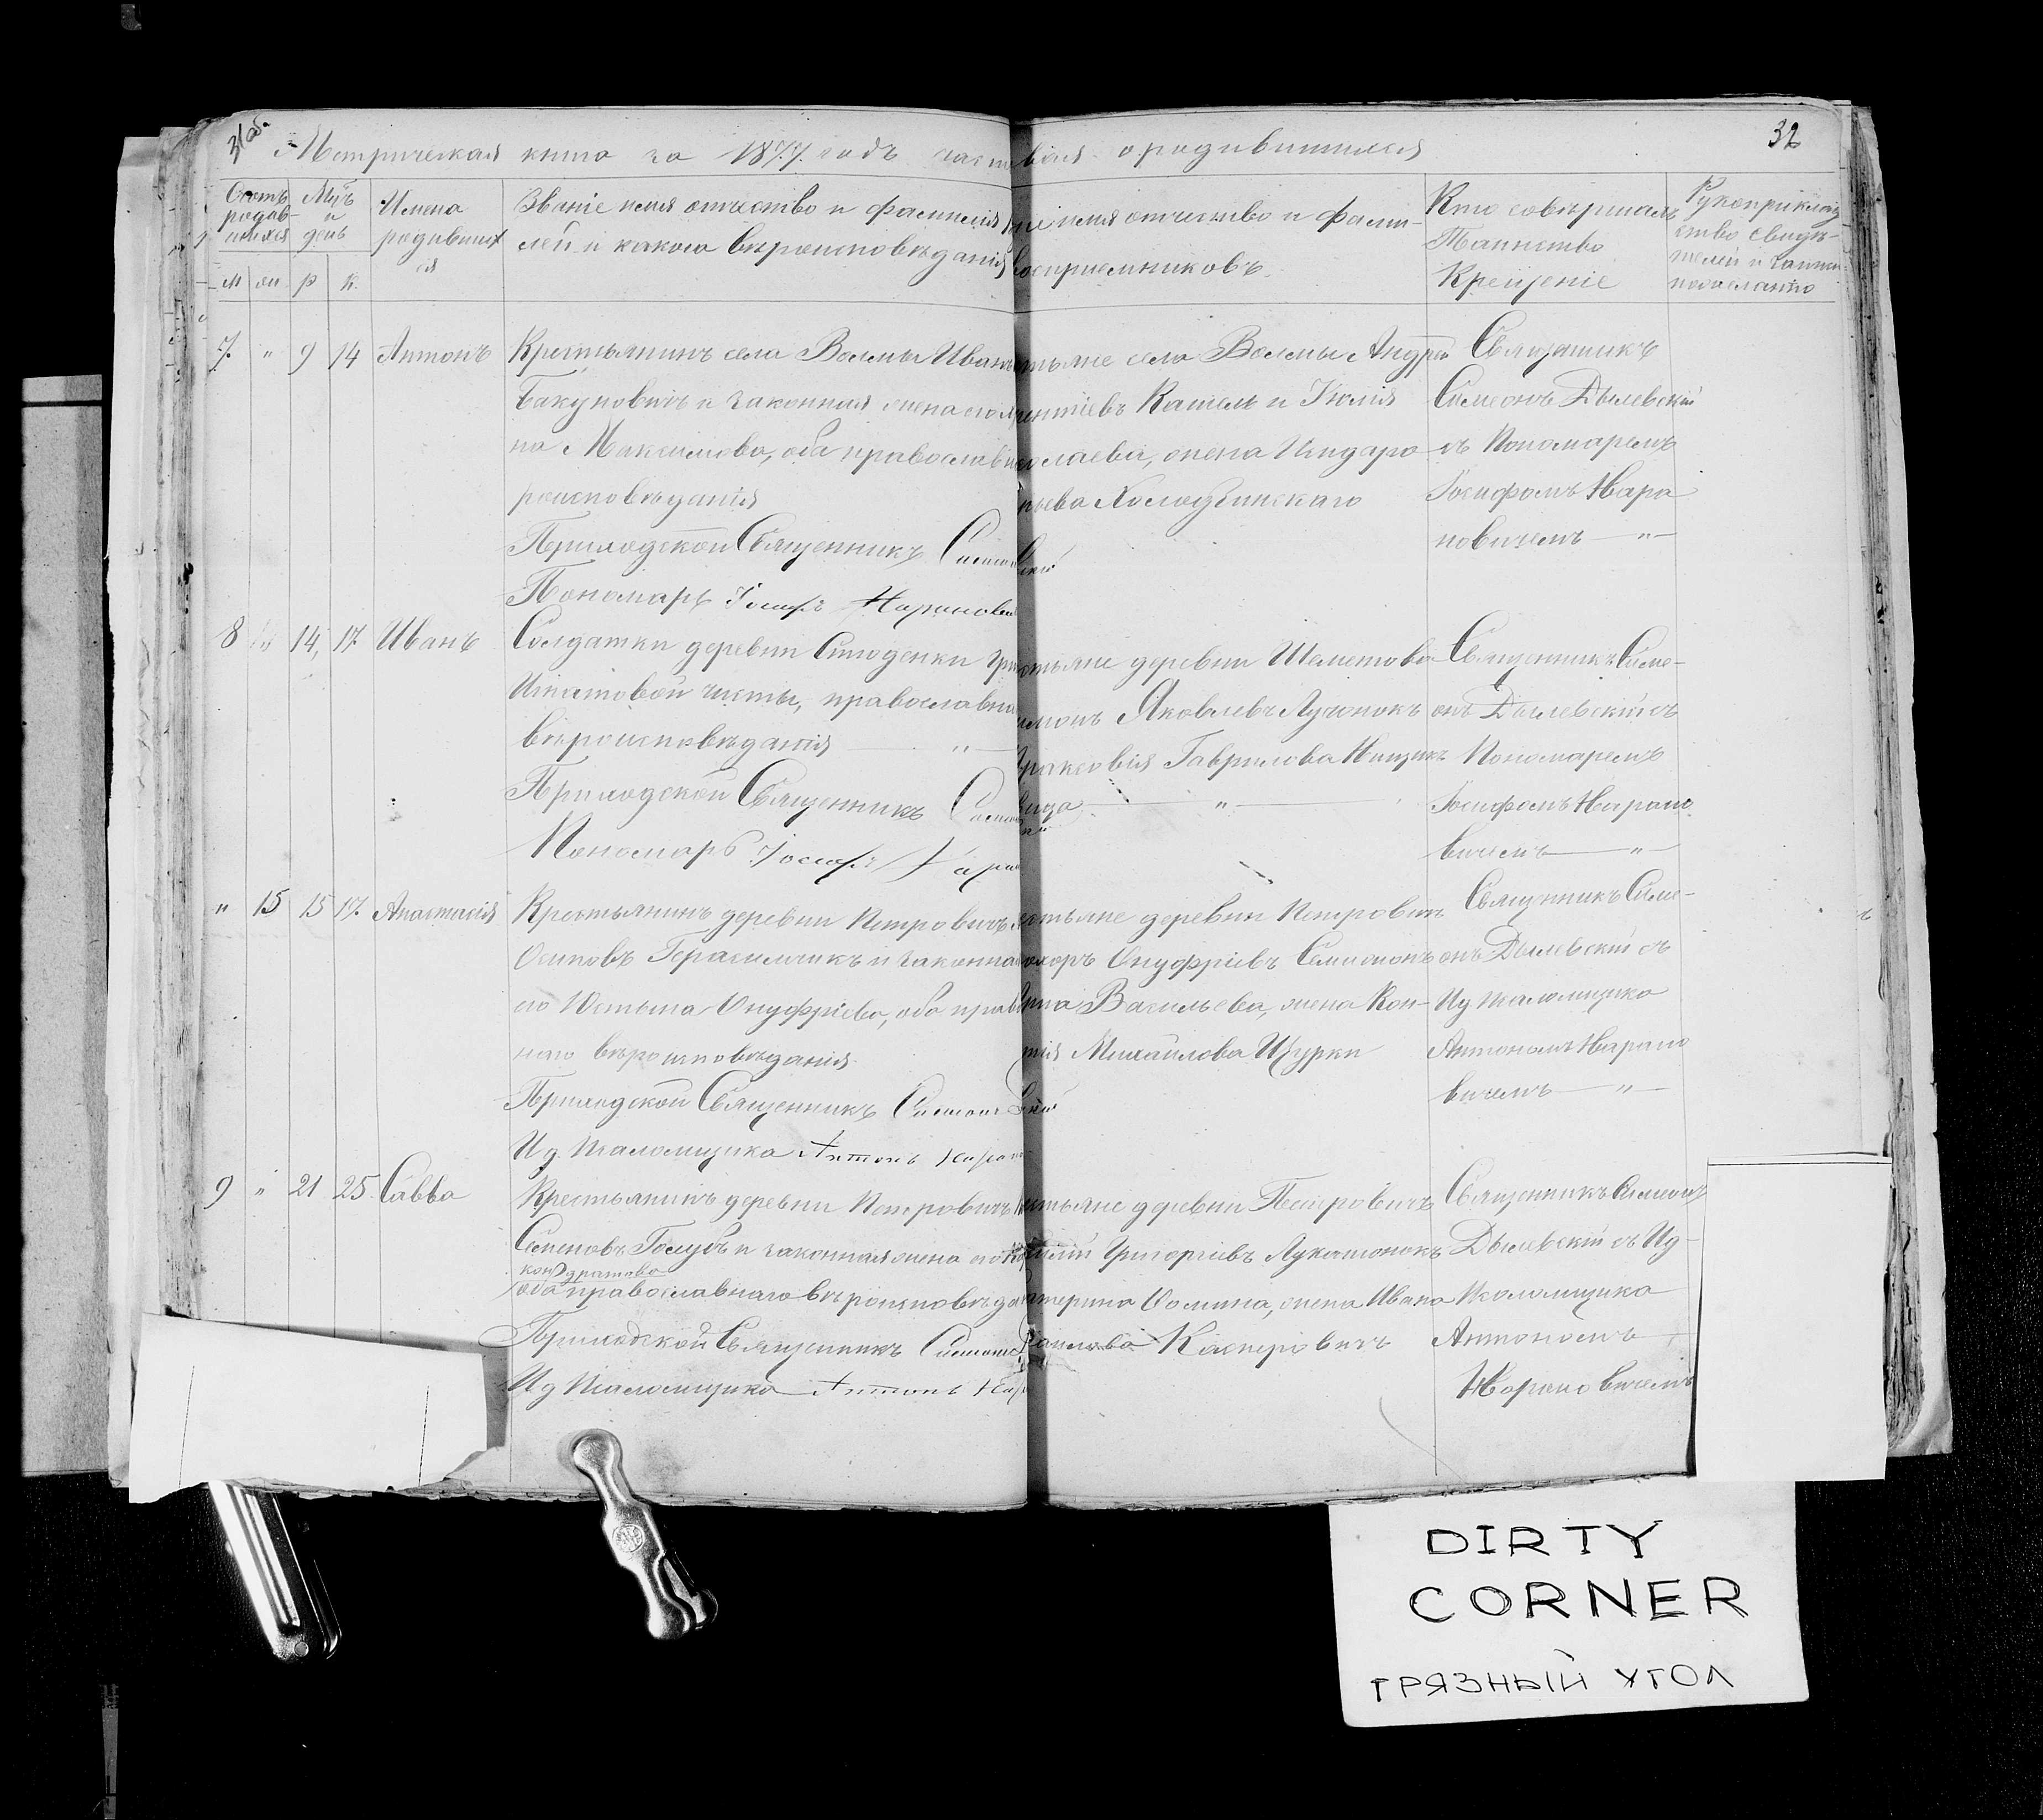 31об.
32
Метрическая книга за 1877 годъ часть
вая о родившихся
Счетъ родив-шихся
Мцъ и день
Имена родившихся
Званіе имя отчество и фамилія
лей и какого вѣроисповѣданія
ніе имя отчество и фами-
воспріемниковъ
Кто совершалъ
Таинство
Крещеніе
Рукоприклад
ство свидѣ-
телей
м
ж
р
к
7. " 9 14 Антонъ
Крестьянинъ села Волмы Иванъ
Бакуновичъ и законная жена его
на Максимова, оба православн
роисповѣданія
Приходской Священникъ Симеон
Пономарь Іосифъ Наранови
тьяне села Волмы Андрей
ентіевъ Кашель и Юлія
олаева, жена Исидара
ньева Холодзинскаго
скій
Священникъ
Симеонъ Дылевскій
съ Пономаремъ
Іосифомъ Нара
новичемъ — " —
8 " 14, 17 Иванъ
Солдатки деревни Студенки
православна
вѣроисповѣданія — " —
Приходской Священникъ
Пономарь Іосифъ Нара
стьяне деревни Шеметова
имонъ Яковлевъ Лучонокъ
раксовія Гаврилова
вица — " —
Священникъ Симе-
онъ Дылевскій съ
Пономаремъ
Іосифомъ Нарано
вичемъ — " —
" 15 15 17. Анастасія
Крестьянинъ деревни Петровичъ
Осиповъ Герасимчикъ и законна
его Юстына Онуфріева, оба прав
наго вѣроисповѣданія
Приходской Священникъ Симеонъ
И д Псаломщика Антонъ Наран
естьяне деревни Петровичъ
охоръ Онуфріевъ
нна Васильева, жена Кон-
тія Михайлова Щурки
скій
Священникъ Симе-
онъ Дылевскій съ
Ид Псаломщика
Антономъ Нарано
вичемъ — " —
9 " 21 25 Савва
Крестьянинъ деревни Петровичъ
Семеновъ Голубъ и законная жена его
Кондратова
оба православнаго вѣроисповѣда
Приходской Священникъ Симеонъ
И д Псаломщика Антонъ Нар
стьяне деревни Петровичъ
силій Григоріевъ Лукашонокъ
атерина Фомина, жена Ивана
Касперовичъ
Священникъ Симеонъ
Дылевскій съ Ид
Псаломщика
Антономъ
Нарановичемъ
DIRTY
CORNER
ГРЯЗНЫЙ УГОЛ